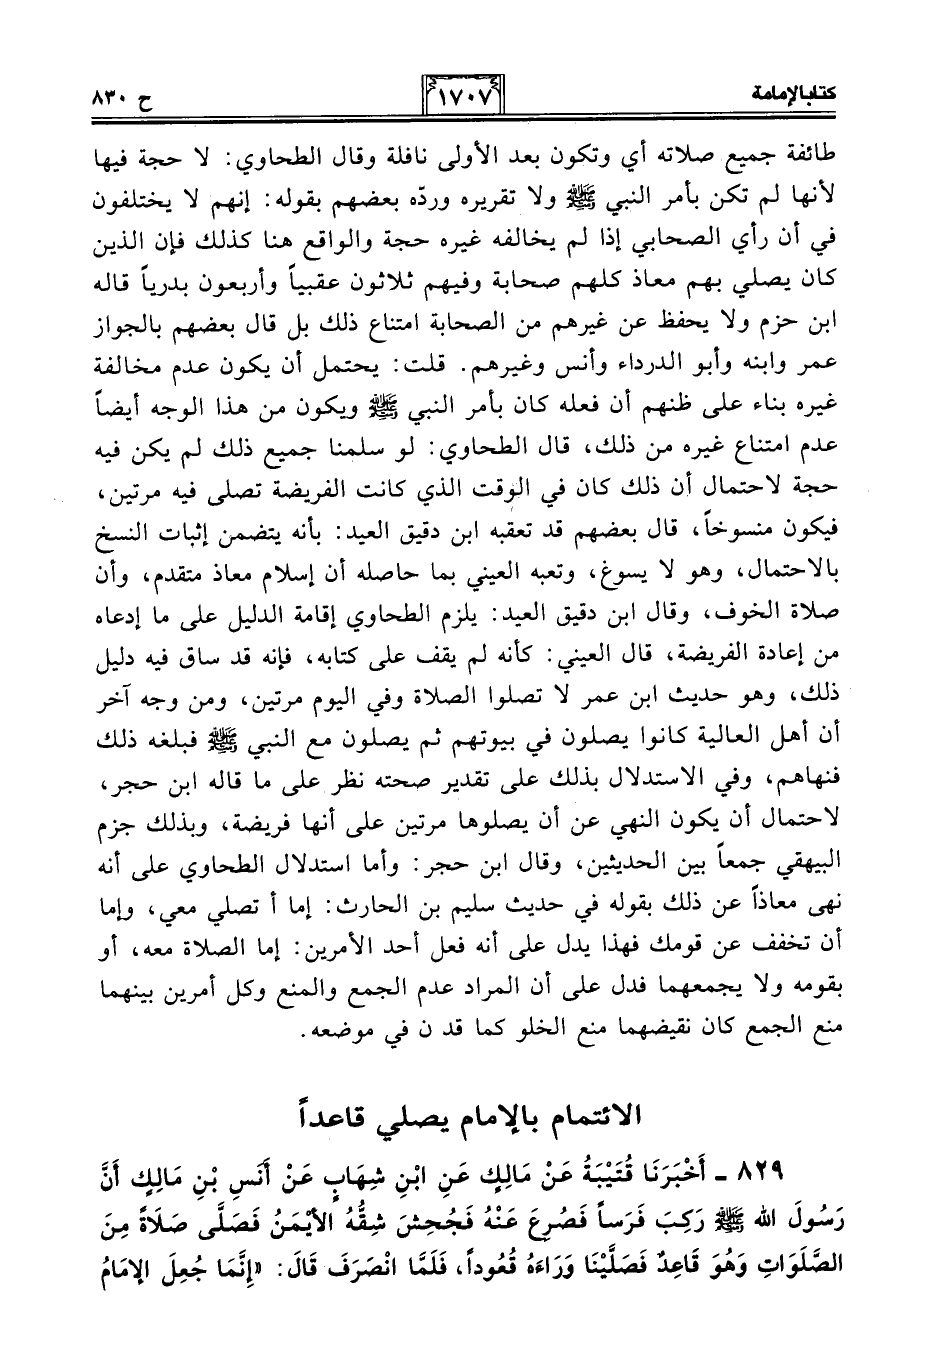 كتاب الإمامة ١٧٠٧ ح ٨٣٠
طائفة جميع صلاته أي وتكون بعد الأولى نافلة وقال الطحاوي: لا حجة فيها
لأنها لم تكن بأمر النبي ﷺ ولا تقريره وردّه بعضهم بقوله: إنهم لا يختلفون
في أن رأي الصحابي إذا لم يخالفه غيره حجة والواقع هنا كذلك فإن الذين
كان يصلي بهم معاذ كلهم صحابة وفيهم ثلاثون عقبياً وأربعون بدرياً قاله
ابن حزم ولا يحفظ عن غيرهم من الصحابة امتناع ذلك بل قال بعضهم بالجواز
عمر وابنه وأبو الدرداء وأنس وغيرهم. قلت: يحتمل أن يكون عدم مخالفة
غيره بناء على ظنهم أن فعله كان بأمر النبي ﷺ ويكون من هذا الوجه أيضاً
عدم امتناع غيره من ذلك، قال الطحاوي: لو سلمنا جميع ذلك لم يكن فيه
حجة لاحتمال أن ذلك كان في الوقت الذي كانت الفريضة تصلى فيه مرتين،
فيكون منسوخاً، قال بعضهم قد تعقبه ابن دقيق العيد: بأنه يتضمن إثبات النسخ
بالاحتمال، وهو لا يسوغ، وتعبه العيني بما حاصله أن إسلام معاذ متقدم، وأن
صلاة الخوف، وقال ابن دقيق العيد: يلزم الطحاوي إقامة الدليل على ما إدعاه
من إعادة الفريضة، قال العيني: كأنه لم يقف على كتابه، فإنه قد ساق فيه دليل
ذلك، وهو حديث ابن عمر لا تصلوا الصلاة وفي اليوم مرتين، ومن وجه آخر
أن أهل العالية كانوا يصلون في بيوتهم ثم يصلون مع النبي ﷺ فبلغه ذلك
فنهاهم، وفي الاستدلال بذلك على تقدير صحته نظر على ما قاله ابن حجر،
لاحتمال أن يكون النهي عن أن يصلوها مرتين على أنها فريضة، وبذلك جزم
البيهقي جمعاً بين الحديثين، وقال ابن حجر: وأما استدلال الطحاوي على أنه
نهى معاذاً عن ذلك بقوله في حديث سليم بن الحارث: إما أ تصلي معي، وإما
أن تخفف عن قومك فهذا يدل على أنه فعل أحد الأمرين: إما الصلاة معه، أو
بقومه ولا يجمعهما فدل على أن المراد عدم الجمع والمنع وكل أمرين بينهما
منع الجمع كان نقيضهما منع الخلو كما قد ن في موضعه.
الائتمام بالإمام يصلي قاعداً
٨٢٩ - أَخْبَرَنَا قُتَيْبَةُ عَنْ مَالِكٍ عَنِ ابْنِ شِهَابٍ عَنْ أَنَسِ بْنِ مَالِكٍ أَنَّ
رَسُولَ الله ﷺ رَكِبَ فَرَساً فَصُرِعَ عَنْهُ فَجُحِشَ شِقُّهُ الأَيْمَنُ فَصَلَّى صَلَاةً مِنَ
الصَّلَوَاتِ وَهُوَ قَاعِدٌ فَصَلَّيْنَا وَرَاءَهُ قُعُوداً، فَلَمَّا انْصَرَفَ قَالَ: «إِنَّمَا جُعِلَ الإِمَامُ